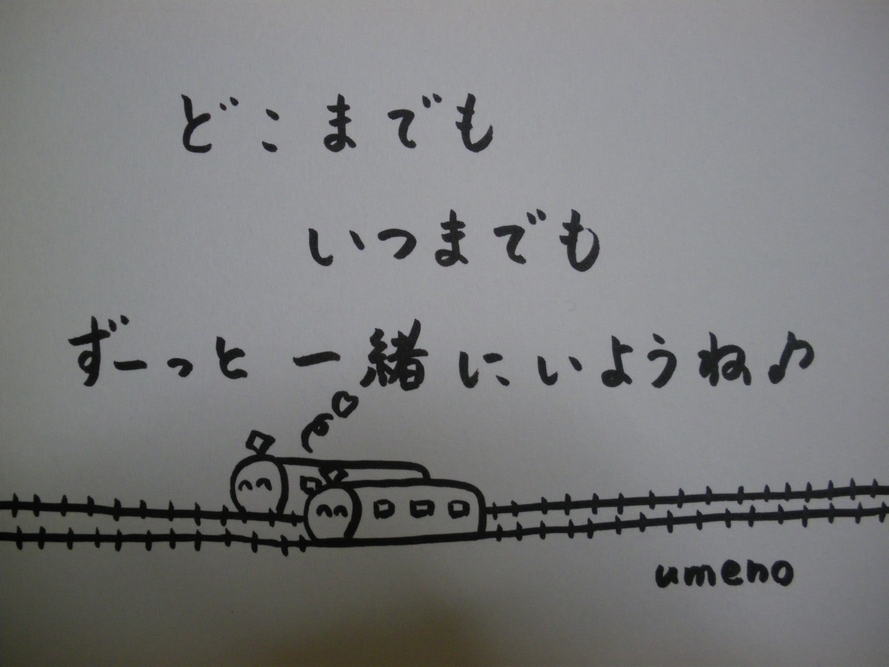 どこまでも
いつまでも
ずーっと 一緒にいようね♪
umeno